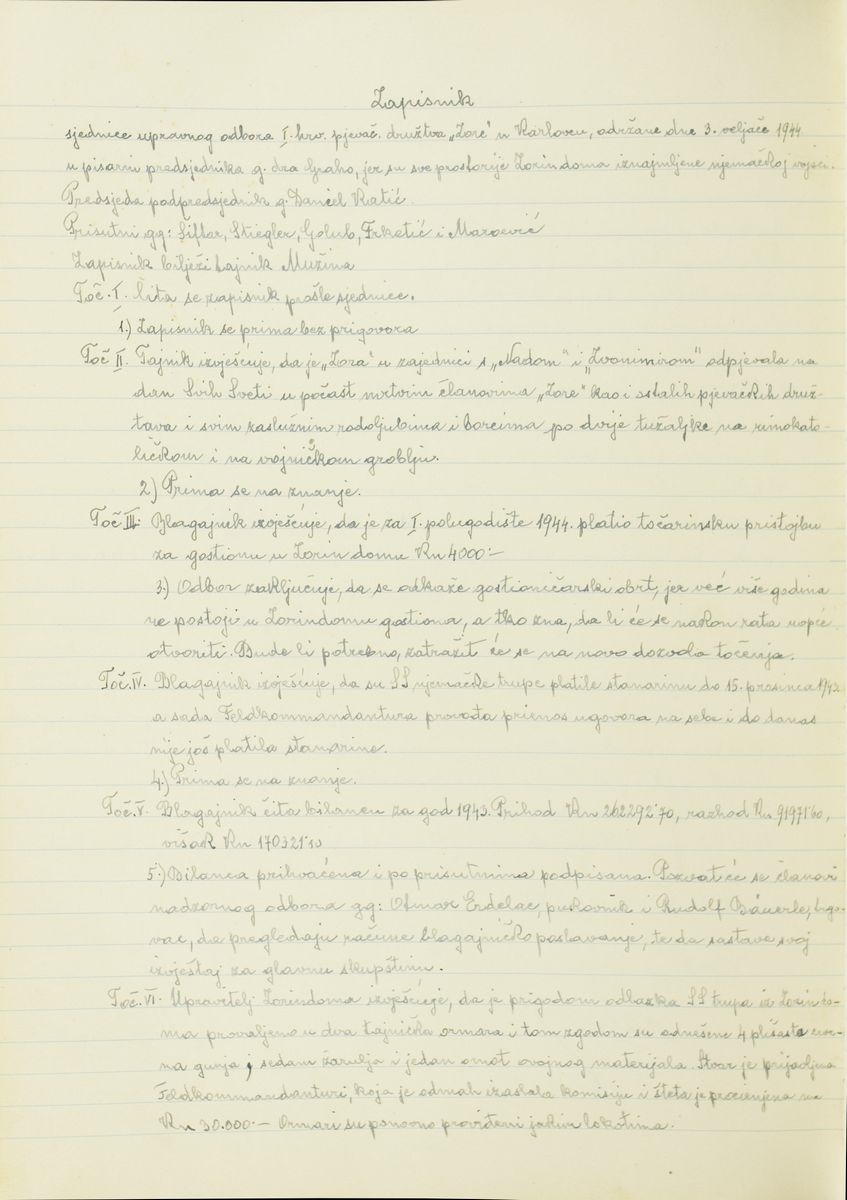 Zapisnik
sjednice upravnog odbora I. hrv. pjevač. društva „Zore" u Karlovcu, održane dne 3. veljače 1944
u pisarni predsjednika g. dra Graho, jer su sve prostorije Zorin doma iznajmljene njemačkoj vojsci.
Predsjeda podpredsjednik g. Daniel Katić.
Prisutni gg: Šiftar, Stiegler, Golub, Frketić i Maroević
Zapisnik bilježi tajnik Mužina
Toč. I. Čita se zapisnik prošle sjednice.
1.) Zapisnik se prima bez prigovora
Toč II. Tajnik izvješćuje, da je „Zora" u zajednici s „Nadom" i „Zvonimirom" odpjevala na
dan Svih Sveti u počast mrtvim članovima „Zore" kao i ostalih pjevačkih druž-
tava i svim zaslužnim rodoljubima i borcima po dvije tužaljke na rimokato-
ličkom i na vojničkom groblju.
2) Prima se na znanje.
Toč III. Blagajnik izvješćuje, da je za I. polugodište 1944. platio točarinsku pristojbu
za gostionu u Zorin domu Kn 4000:-
3.) Odbor zaključuje, da se otkaže gostioničarski obrt, jer već više godina
ne postoji u Zorindomu gostiona, a tko zna, da li će se nakon rata uopće
otvoriti. Bude li potrebno, zatražit će se na novo dozvola točenja.
Toč. IV. Blagajnik izvješćuje, da su SS njemačke trupe platile stanarinu do 15. prosinca 1943.
a sada Feldkommandantura provođa prienos ugovora na sebe i do danas
nije još platila stanarine.
4.) Prima se na znanje.
Toč. V. Blagajnik čita bilancu za god 1943. Prihod Kn 262292·70, razhod Kn 91971·60,
višak Kn 170321·10
5.) Bilanca prihvaćena i po prisutnima podpisana. Pozvat će se članovi
nadzornog odbora gg: Otmar Erdelac, pukovnik i Rudolf Bäuerle, trgo-
vac, da pregledaju račune blagajničko poslavanje, te da sastave svoj
izvještaj za glavnu skupštinu.
Toč. VI. Upravitelj Zorindoma izvješćuje, da je prigodom odlazka SS trupa iz Zorin do-
ma provaljeno u dva tajnička ormara i tom zgodom su odnešene 4 plišasta
na gunja, sedam žarulja i jedan omot ovojnog materijala. Stvar je prijavljena
Feldkommandanturi, koja je odmah izaslala komisiju i šteta je procienjena na
Kn 30.000.- Ormari su ponovno providjeni jakim lokotima.